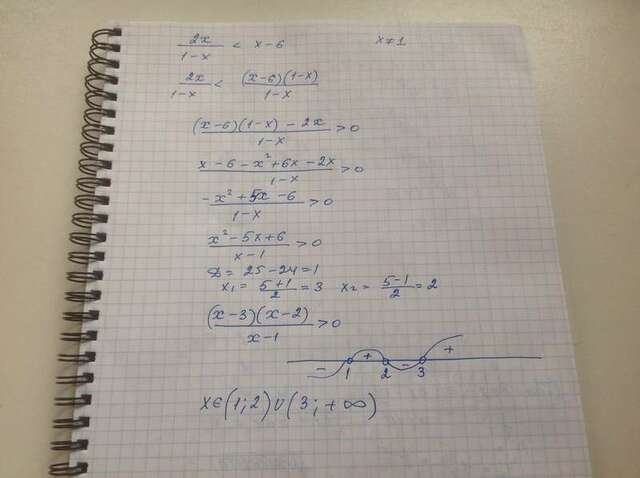 2x/(1-x) < x-6 x≠1
2x/(1-x) < (x-6)(1-x)/(1-x)
((x-6)(1-x)-2x)/(1-x) > 0
(x-6-x²+6x-2x)/(1-x) > 0
(-x²+5x-6)/(1-x) > 0
(x²-5x+6)/(x-1) > 0
D = 25-24=1
x₁ = (5+1)/2 = 3 x₂ = (5-1)/2 = 2
(x-3)(x-2)/(x-1) > 0
- + - +
1 2 3
x∈(1;2)∪(3;+∞)